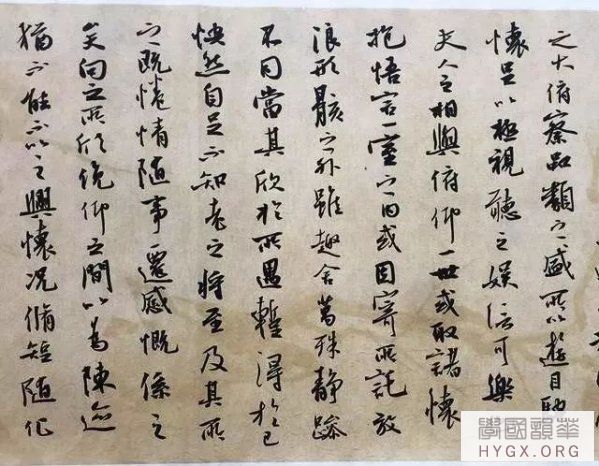 之大俯察品類之盛所以遊目騁
懷足以極視聽之娛信可樂
夫人之相與俯仰一世或取諸懷
抱悟言一室之內或因寄所託放
浪形骸之外雖趣舍萬殊靜躁
不同當其欣於所遇暫得於己
怏然自足不知老之將至及其所
之既惓情隨事遷感慨係之
矣向之所欣俛仰之間以為陳迹
猶不能不以之興懷況脩短隨化
華韻國學
HYGX.ORG